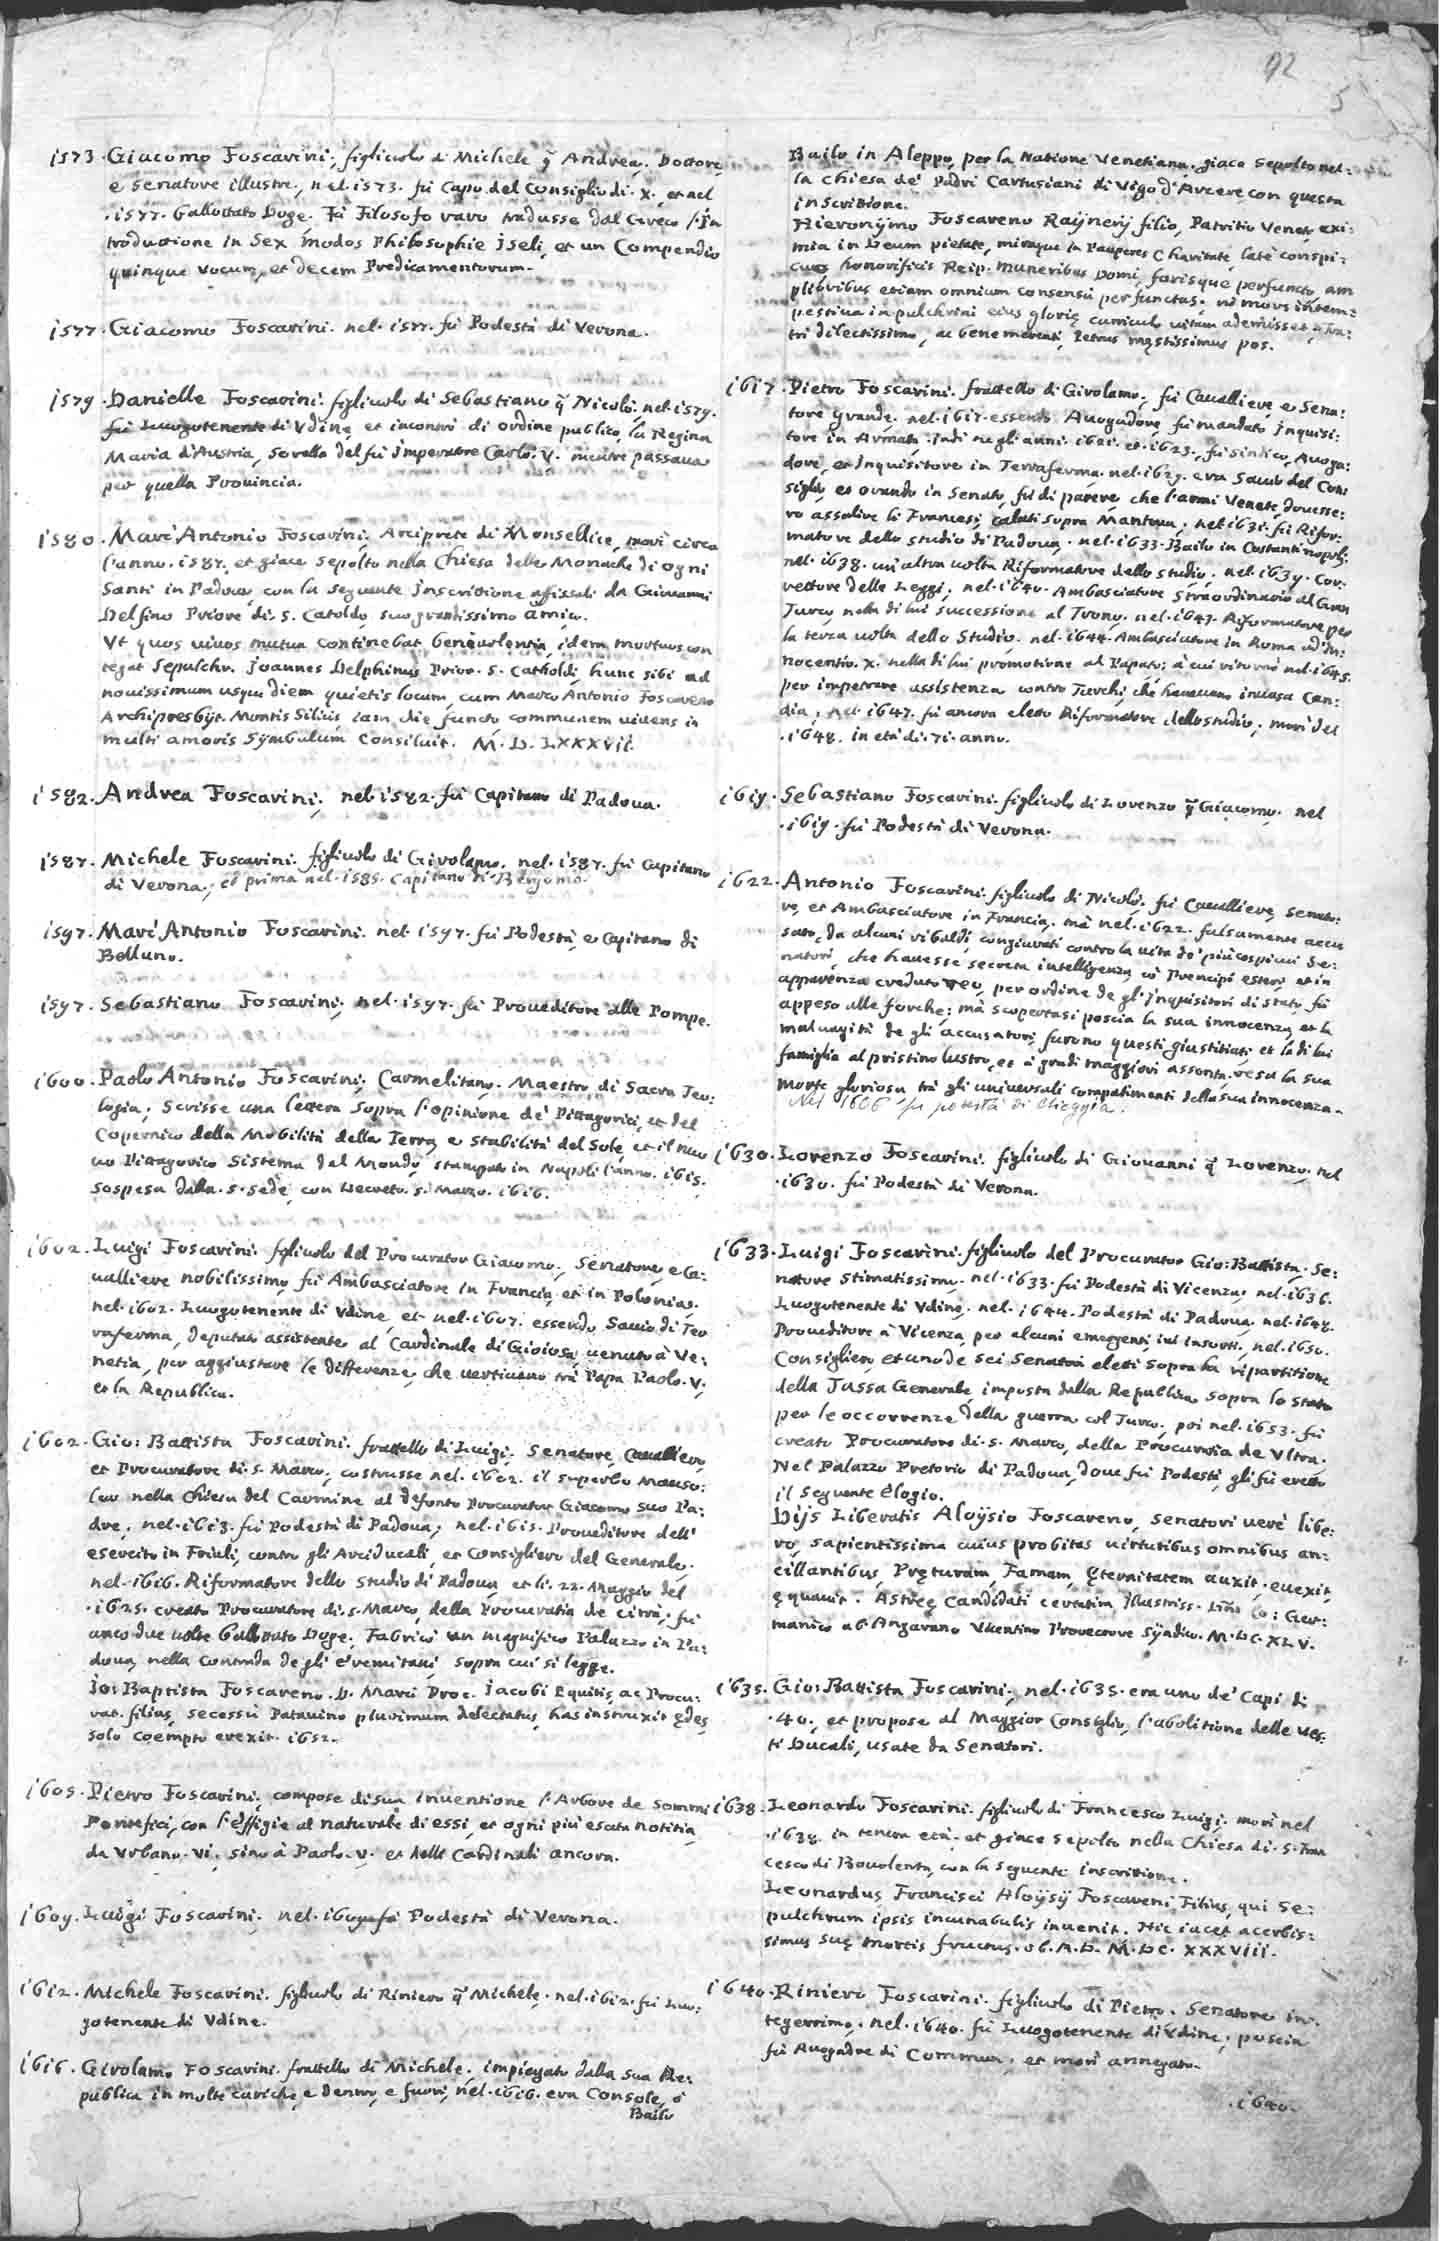 92
5
1573. Giacomo Foscarini, figliuolo di Michele q̃ Andrea, Dottore,
e Senatore illustre, nel 1573. fù Capo del Consiglio di .X. et nel
.1577. Ballottato Doge. Fù Filosofo raro tradusse dal Greco l'In
troductione in Sex modos Philosophie Iseli, et un Compendio
quinque vocum, et decem Predicamentorum.
1577. Giacomo Foscarini. nel. 1577. fù Podestà di Verona.
1579. Danielle Foscarini. figliuolo di Sebastiano q̃ Nicolò. nel. 1579.
fù Luogotenente di Vdine et incontrò di ordine publico, la Regina
Maria d'Austria, sorella del fù Imperatore Carlo .V. mentre passaua
per quella Prouincia.
1580. Marc'Antonio Foscarini, Arciprete di Monsellice, morì circa
l'anno. 1587. et giace sepolto nella Chiesa delle Monache di ogni
Santi in Padoua, con la seguente Inscrittione affissali da Giouanni
Delfino Priore di .S. Cataldo, suo grandissimo amico.
Vt quos viuos mutua continebat beneuolentia, idem mortuos con
tegat Sepulchr. Joannes Delphinus Prior .S. Catholdi, hunc sibi ad
nouissimum usque diem quietis locum, cum Marco Antonio Foscareno
Archipresbijt. Montis Silicis iam die functo communem viuens in
multi amoris Symbulum Consiluit. M.D.LXXXVII.
1582. Andrea Foscarini, nel. 1582. fù Capitano di Padoua.
1587. Michele Foscarini. figliuolo di Girolamo. nel. 1587. fù Capitano
di Verona, et prima nel. 1585. Capitano di Bergamo.
1597. Marc'Antonio Foscarini. nel. 1597. fù Podestà, e Capitano di
Belluno.
1597. Sebastiano Foscarini, nel. 1597. fù Proueditore alle Pompe.
1600. Paolo Antonio Foscarini, Carmelitano, Maestro di Sacra Teo:
logia, Scrisse una lettera sopra l'opinione de' Pittagorici, et del
Copernico della Mobilità della Terra, e Stabilità del Sole, et il nuo
uo Pittagorico Sistema del Mondo, stampato in Napoli l'anno. 1615.
sospesa dalla .S. Sede, con Decreto. 5. Marzo. 1616.
1602. Luigi Foscarini. figliuolo del Procurator Giacomo, Senatore, e Ca:
uallier nobilissimo, fù Ambasciatore in Francia, et in Polonia,
nel. 1602. Luogotenente di Vdine, et nel. 1607. essendo Sauio di Ter
raferma, deputato assistente al Cardinale di Gioiosa, uenuto à Ve:
netia, per aggiustare le differenze, che uertiuano trà Papa Paolo .V.
et la Republica.
1602. Gio: Battista Foscarini. frattello di Luigi, Senatore, Caualliere,
et Procuratore di .S. Marco, costrusse nel. 1602. il superbo Mauso:
leo nella Chiesa del Carmine al defonto Procurator Giacomo suo Pa:
dre, nel. 1613. fù Podestà di Padoua, nel. 1615. Proueditore dell'
esercito in Friuli, contro gli Arciducali, et Consigliero del Generale,
nel. 1616. Riformatore dello Studio di Padoua, et li. 22. Maggio del
.1625. creato Procuratore di .S. Marco, della Procuratia de citrà, fù
anco due uolte Ballottato Doge. Fabricò un magnifico Palazzo in Pa:
doua, nella Contrada degli eremitani, sopra cui si legge.
Jo: Baptista Foscareno .D. Marci Proc. Jacobi Equitis, ac Procu:
rat. filius, secessù Patauino plurimum delectatus, has instruxit ędes,
solo coempto erexit. 1652.
1605. Pietro Foscarini, compose di sua inuentione l'Arbore de Sommi
Pontefici, con l'effigie al naturale di essi, et ogni più esata notitia,
da Vrbano .VI. sino à Paolo .V. et delli Cardinali ancora.
1609. Luigi Foscarini. nel. 1609. fù Podestà di Verona.
1612. Michele Foscarini. figliuolo di Riniero q̃ Michele. nel. 1612. fù Luo:
gotenente di Vdine.
1616. Girolamo Foscarini. frattello di Michele, impiegato dalla sua Re:
publica in molte cariche, e dentro, e fuori, nel. 1616. era Console, ò
Bailo
Bailo in Aleppo, per la Natione Venetiana. giace sepolto nel:
la chiesa de' Padri Cartusiani di Vigo d'Arcere con questa
inscrittione.
Hieronÿmo Foscareno Raÿnerÿ filio, Patritio Veneto, exi:
mia in Deum pietate, miraque in Pauperes Charitate, latè conspi:
cuo, honorificis Reip. muneribus Domi, forisque perfuncto, am
plioribus etiam omnium consensù perfunctus, ni mors intem:
pestiua in pulchrini eius glorię curriculo uitam ademisset, Fra:
tri dilectissimo, ac benemerenti, Petrus męstissimus pos.
1617. Pietro Foscarini. frattello di Girolamo, fù Caualliere, e Sena:
tore grande. nel. 1617. essendo Auogadore, fù mandato Inquisi:
tore in Armata, indi negli anni. 1621. et. 1623. fù sindico, Auoga:
dore, et Inquisitore in Terraferma. nel. 1629. era Sauio del Con:
siglio, et orando in Senato, fù di parere, che l'armi Venete, douesse:
ro assalire li Francesi, calati sopra Mantoua, nel. 1631. fù Rifor:
matore dello studio di Padoua. nel. 1633. Bailo in Costantinopoli;
nel. 1638. un'altra uolta Riformatore dello studio, nel. 1639. Cor:
rettore delle Leggi, nel. 1640. Ambasciatore Straordinario al Gran
Turco, nella di lui successione al Trono, nel. 1643. Riformatore per
la terza uolta dello Studio, nel. 1644. Ambasciatore in Roma ad In:
nocentio .X. nella di lui promotione al Papato; à cui ritornò nel. 1645.
per impetrare assistenza contro Turchi, che haueuano inuasa Can:
dia, nel. 1647. fù ancora eletto Riformatore dello studio, morì del
.1648. in età di. 71. anno.
1619. Sebastiano Foscarini. figliuolo di Lorenzo q̃ Giacomo, nel
.1619. fù Podestà di Verona.
1622. Antonio Foscarini. figliuolo di Nicolò, fù Caualliere, Senato:
re, et Ambasciatore in Francia, mà nel. 1622. falsamente accu
sato, da alcuni ribaldi, congiurati contro la uita de' più cospicui Se:
natori, che hauesse secreta intelligenza, cò Prencipi esteri, et in
apparenza creduto reo, per ordine de gl'Inquisitori di stato, fù
appeso alle forche; mà scopertasi poscia la sua innocenza, et la
maluagità de gli accusatori, furono questi giustitiati, et la di lui
famiglia al pristino lustro, et à gradi maggiori assonta, resa la sua
morte gloriosa trà gli uniuersali compatimenti della sua innocenza.
Nel 1606 fu potestà di Chioggia.
1630. Lorenzo Foscarini. figliuolo di Giouanni q̃ Lorenzo, nel
.1630. fù Podestà di Verona.
1633. Luigi Foscarini. figliuolo del Procurator Gio: Battista, Se:
natore stimatissimo. nel. 1633. fù Podestà di Vicenza, nel. 1636.
Luogotenente di Vdine, nel. 1644. Podestà di Padoua, nel. 1648.
Proueditore à Vicenza, per alcuni emergenti iui insorti, nel. 1650.
Consigliero, et uno de sei Senatori eletti sopra la ripartitione
della Tassa Generale, imposta dalla Republica, sopra lo stato
per le occorrenze della guerra col Turco, poi nel. 1653. fù
creato Procuratore di .S. Marco, della Procuratia de Vltra.
Nel Palazzo Pretorio di Padoua, doue fù Podestà, gli fù eretto
il seguente Elogio.
Dijs Liberatis Aloÿsio Foscareno, Senatori uerè libe:
ro, sapientissima cuius probitas uirtutibus omnibus an:
cillantibus, Pręturam, Famam, Ęternitatem auxit, euexit,
ęquauit. Astreę Candidati certatim, Illustriss. Dño Co: Ger:
manico ab Angarano Vicentino Prouectore Sÿndico. M.DC.XLV.
1635. Gio: Battista Foscarini, nel. 1635. era uno de' Capi di
.40. et propose al Maggior Consiglio, l'abolitione delle Ves:
ti Ducali, usate da Senatori.
1638. Leonardo Foscarini. figliuolo di Francesco Luigi, morì nel
.1638. in tenera età. et giace sepolto nella Chiesa di .S. Fran
cesco di Bouolenta, con la seguente inscrittione.
Leonardus Francisci Aloÿsÿ Foscareni Filius, qui Se:
pulchrum ipsis incunabulis inuenit. Hic iacet acerbis:
simus suę mortis fructus. ob. A.D. M.DC.XXXVIII.
1640. Riniero Foscarini. figliuolo di Pietro. Senatore in:
tegerrimo, nel. 1640. fù Luogotenente di Vdine, poscia
fù Auogadre di Commun, et morì annegato.
.1640.